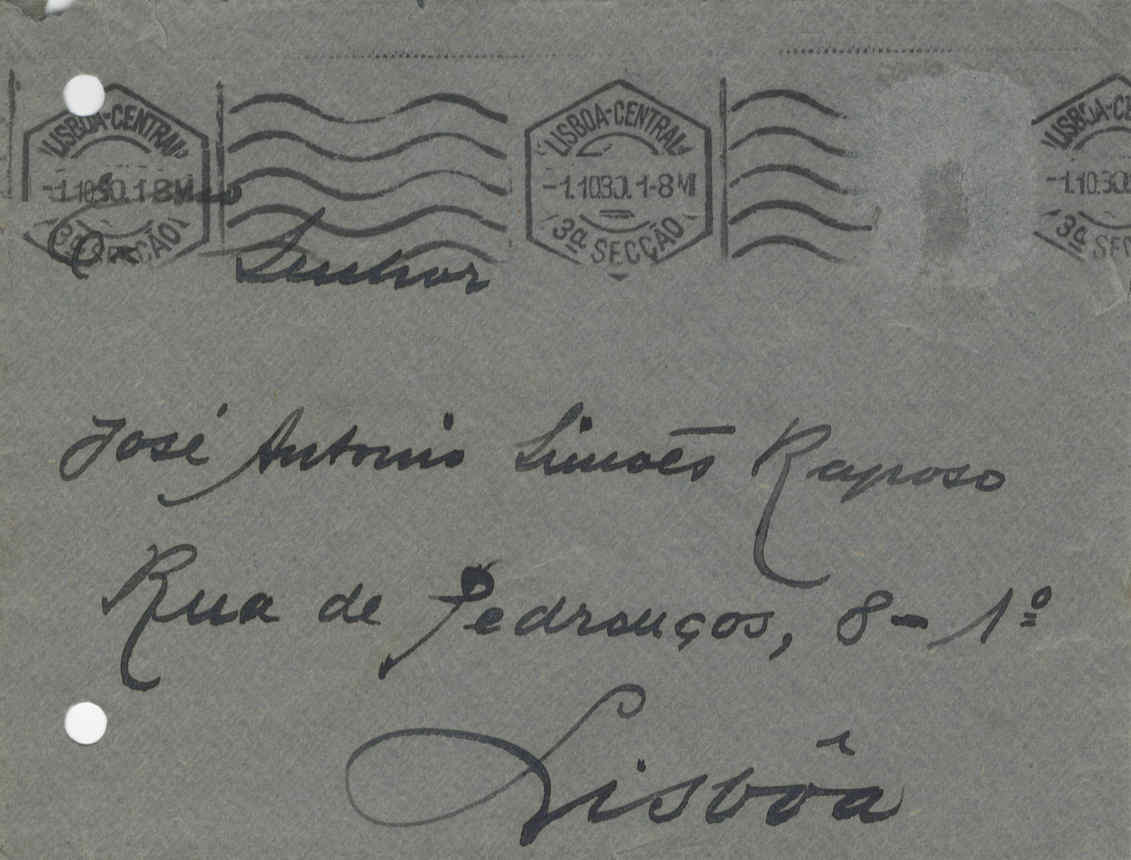 LISBOA-CENTRAL LISBOA-CENTRAL LISBOA-CE
-1.10 30. 1-8 M -1.10 30. 1-8 M -1.10 30
3ª SECÇÃO 3ª SECÇÃO 3ª SEC
Senhor
José Antonio Simões Raposo
Rua de Pedrouços, 8-1º
Lisbôa